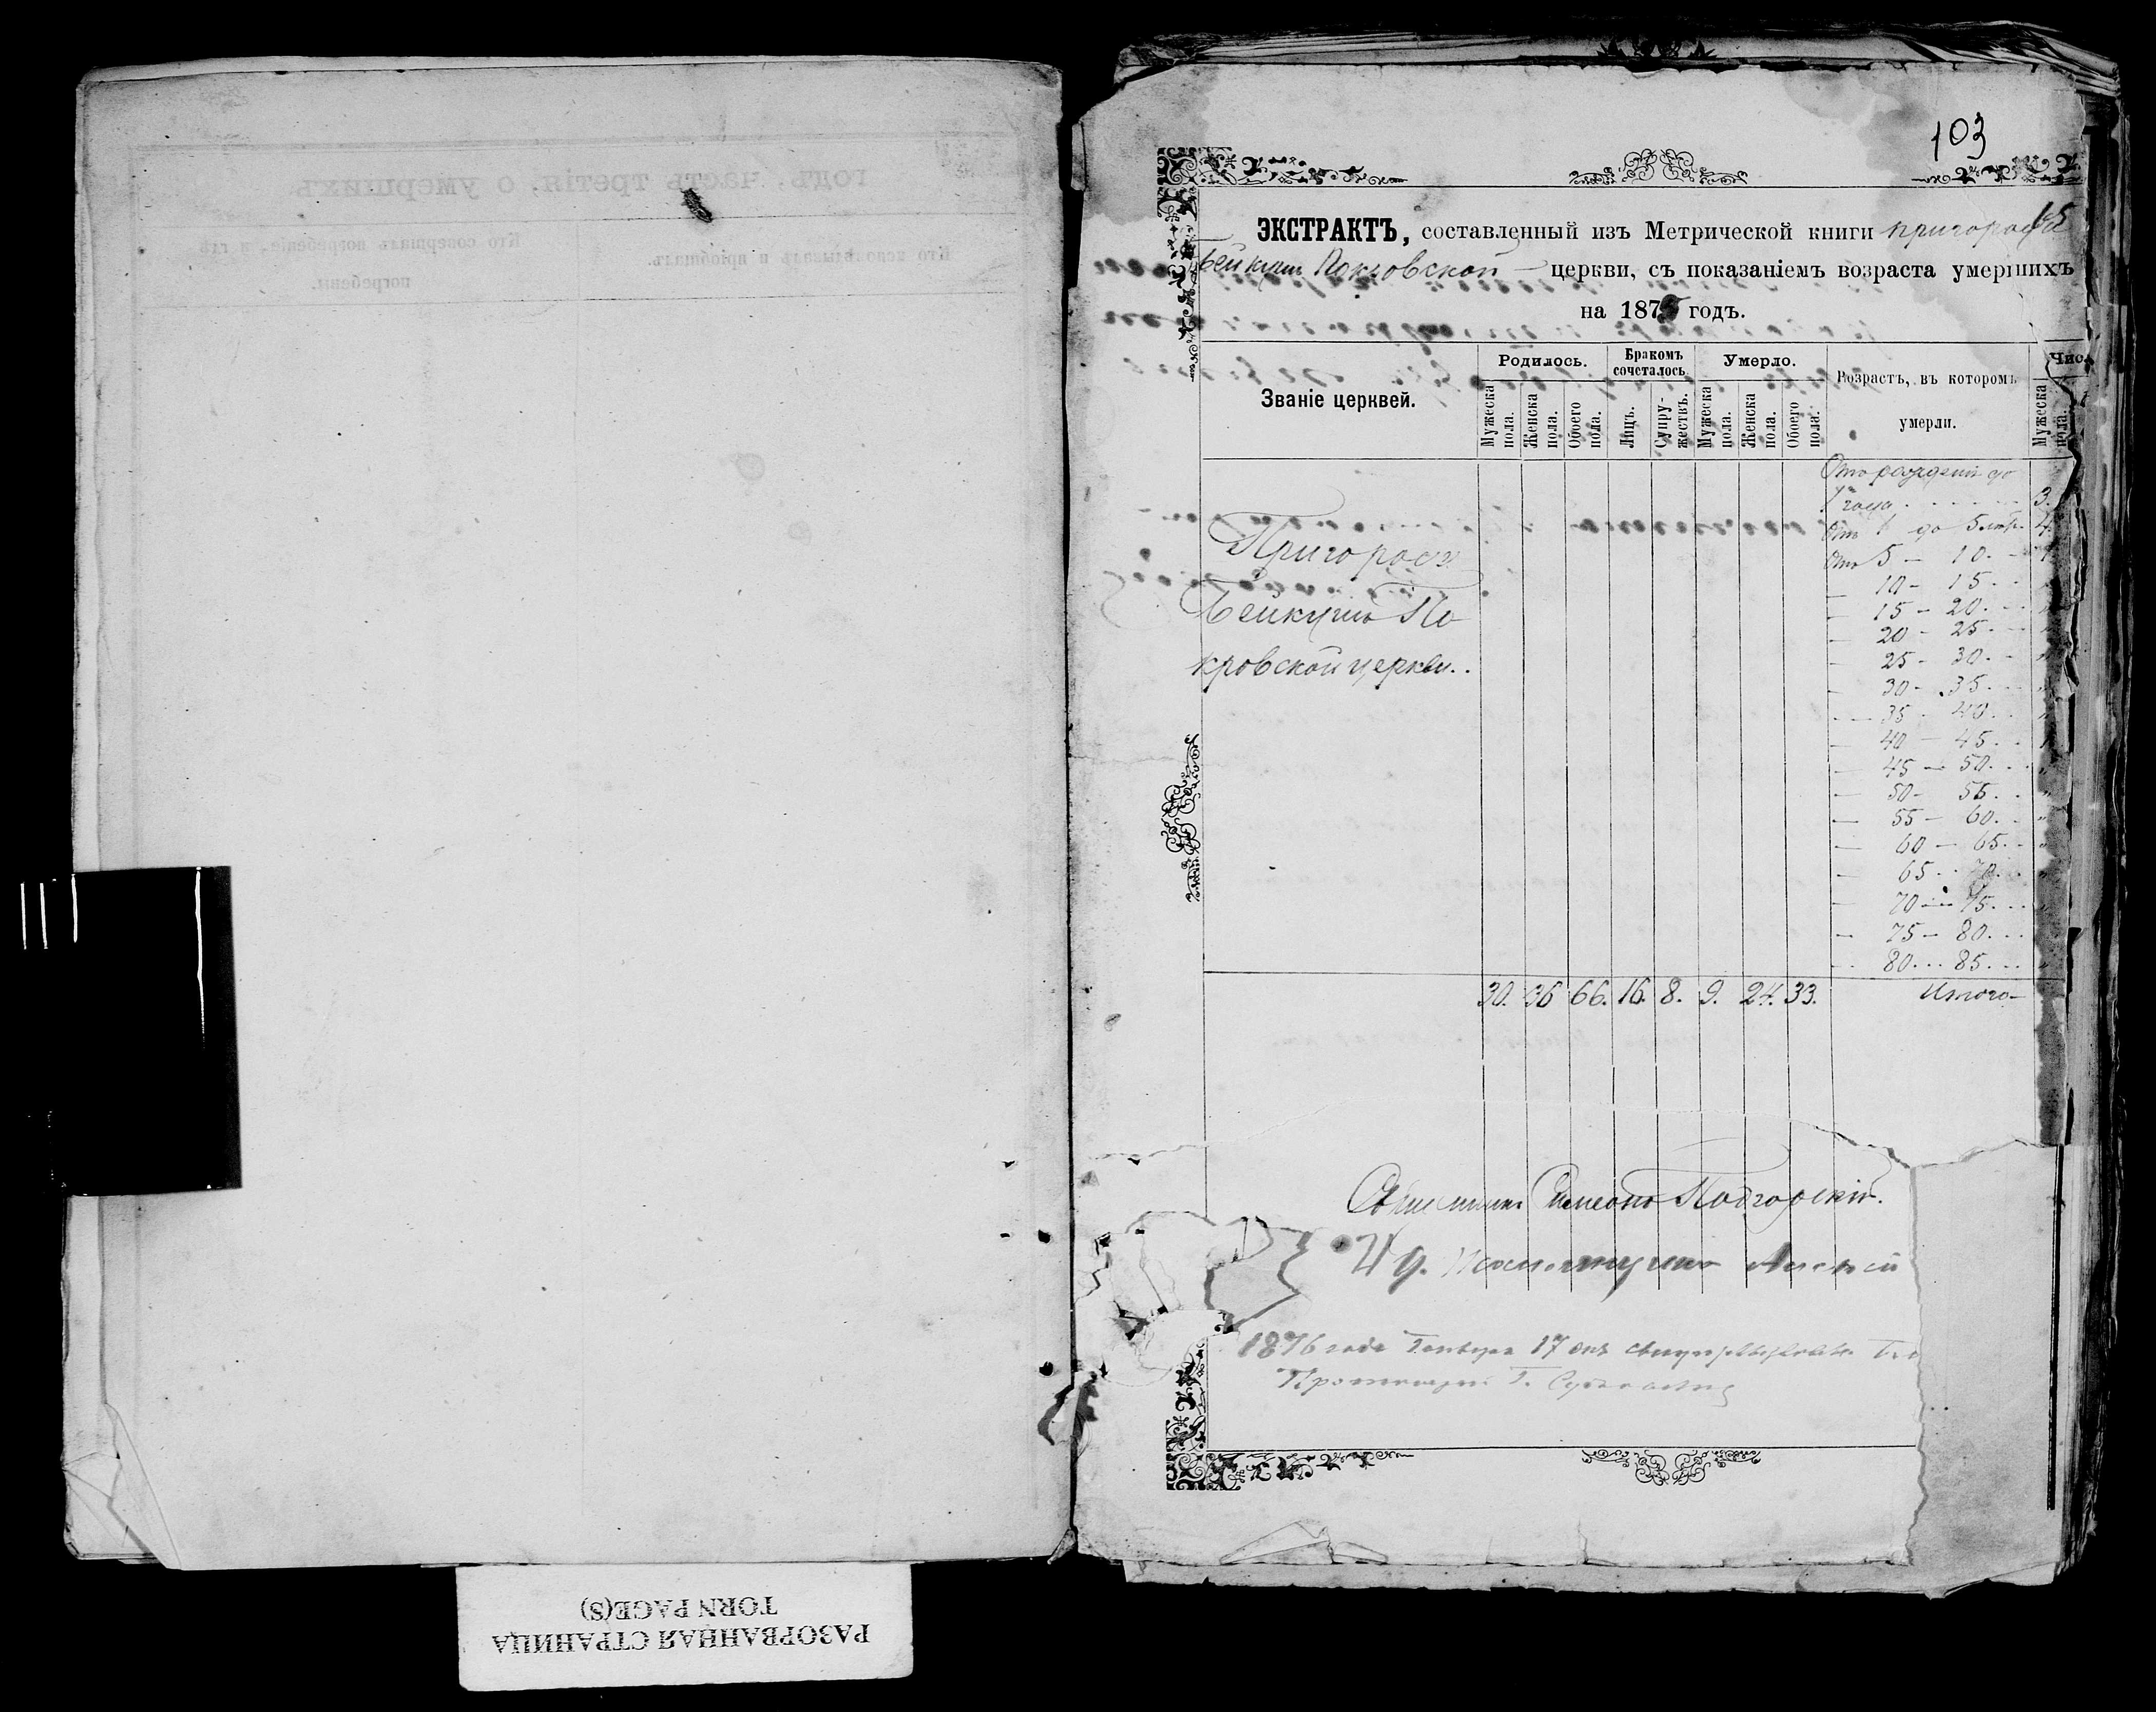 годъ, часть третія, о умершихъ
Кто исповѣдывалъ и пріобщалъ.
Кто совершалъ погребеніе, и гдѣ
погребены.
РАЗОРВАННАЯ СТРАНИЦА
TORN PAGE(S)
103
ЭКСТРАКТЪ, составленный изъ Метрической книги пригорода
Бейкуш Покровской — церкви, съ показаніемъ возраста умершихъ
на 1875 годъ.
Званіе церквей.
Родилось.
Бракомъ сочеталось
Умерло.
Возрастъ, въ которомъ
умерли.
Чис
Мужеска пола.
Женска пола.
Обоего пола.
Лицъ.
Супружествъ.
Мужеска пола.
Женска пола.
Обоего пола.
Мужеска пола.
Отъ рожденія до
1 года . . . . . . 3.
Отъ 1 до 5 лѣтъ. 4.
Отъ 5 — 10. — 1
— 10 — 15 . . "
— 15 — 20 . . . "
— 20 — 25 . . . "
— 25 — 30 . — "
— 30 — 35 . . . "
— 35 . 40 . . "
— 40 — 45 . . 1
— 45 — 50 . . . "
— 50 — 55 . . "
— 55 — 60 . . "
— 60 — 65 . . "
— 65 . . 70 . . "
— 70 — 75 . . . "
— 75 — 80 . . .
— 80 . . . 85 . . . "
Пригорода
Бейкушъ По
кровской церкви..
30. 36 66. 16. 8. 9. 24. 33. Итого —
Священникъ Симеонъ Подгорскій.
И д. Псаломщика
1876 года Генваря 17 дня свидѣтельствовалъ